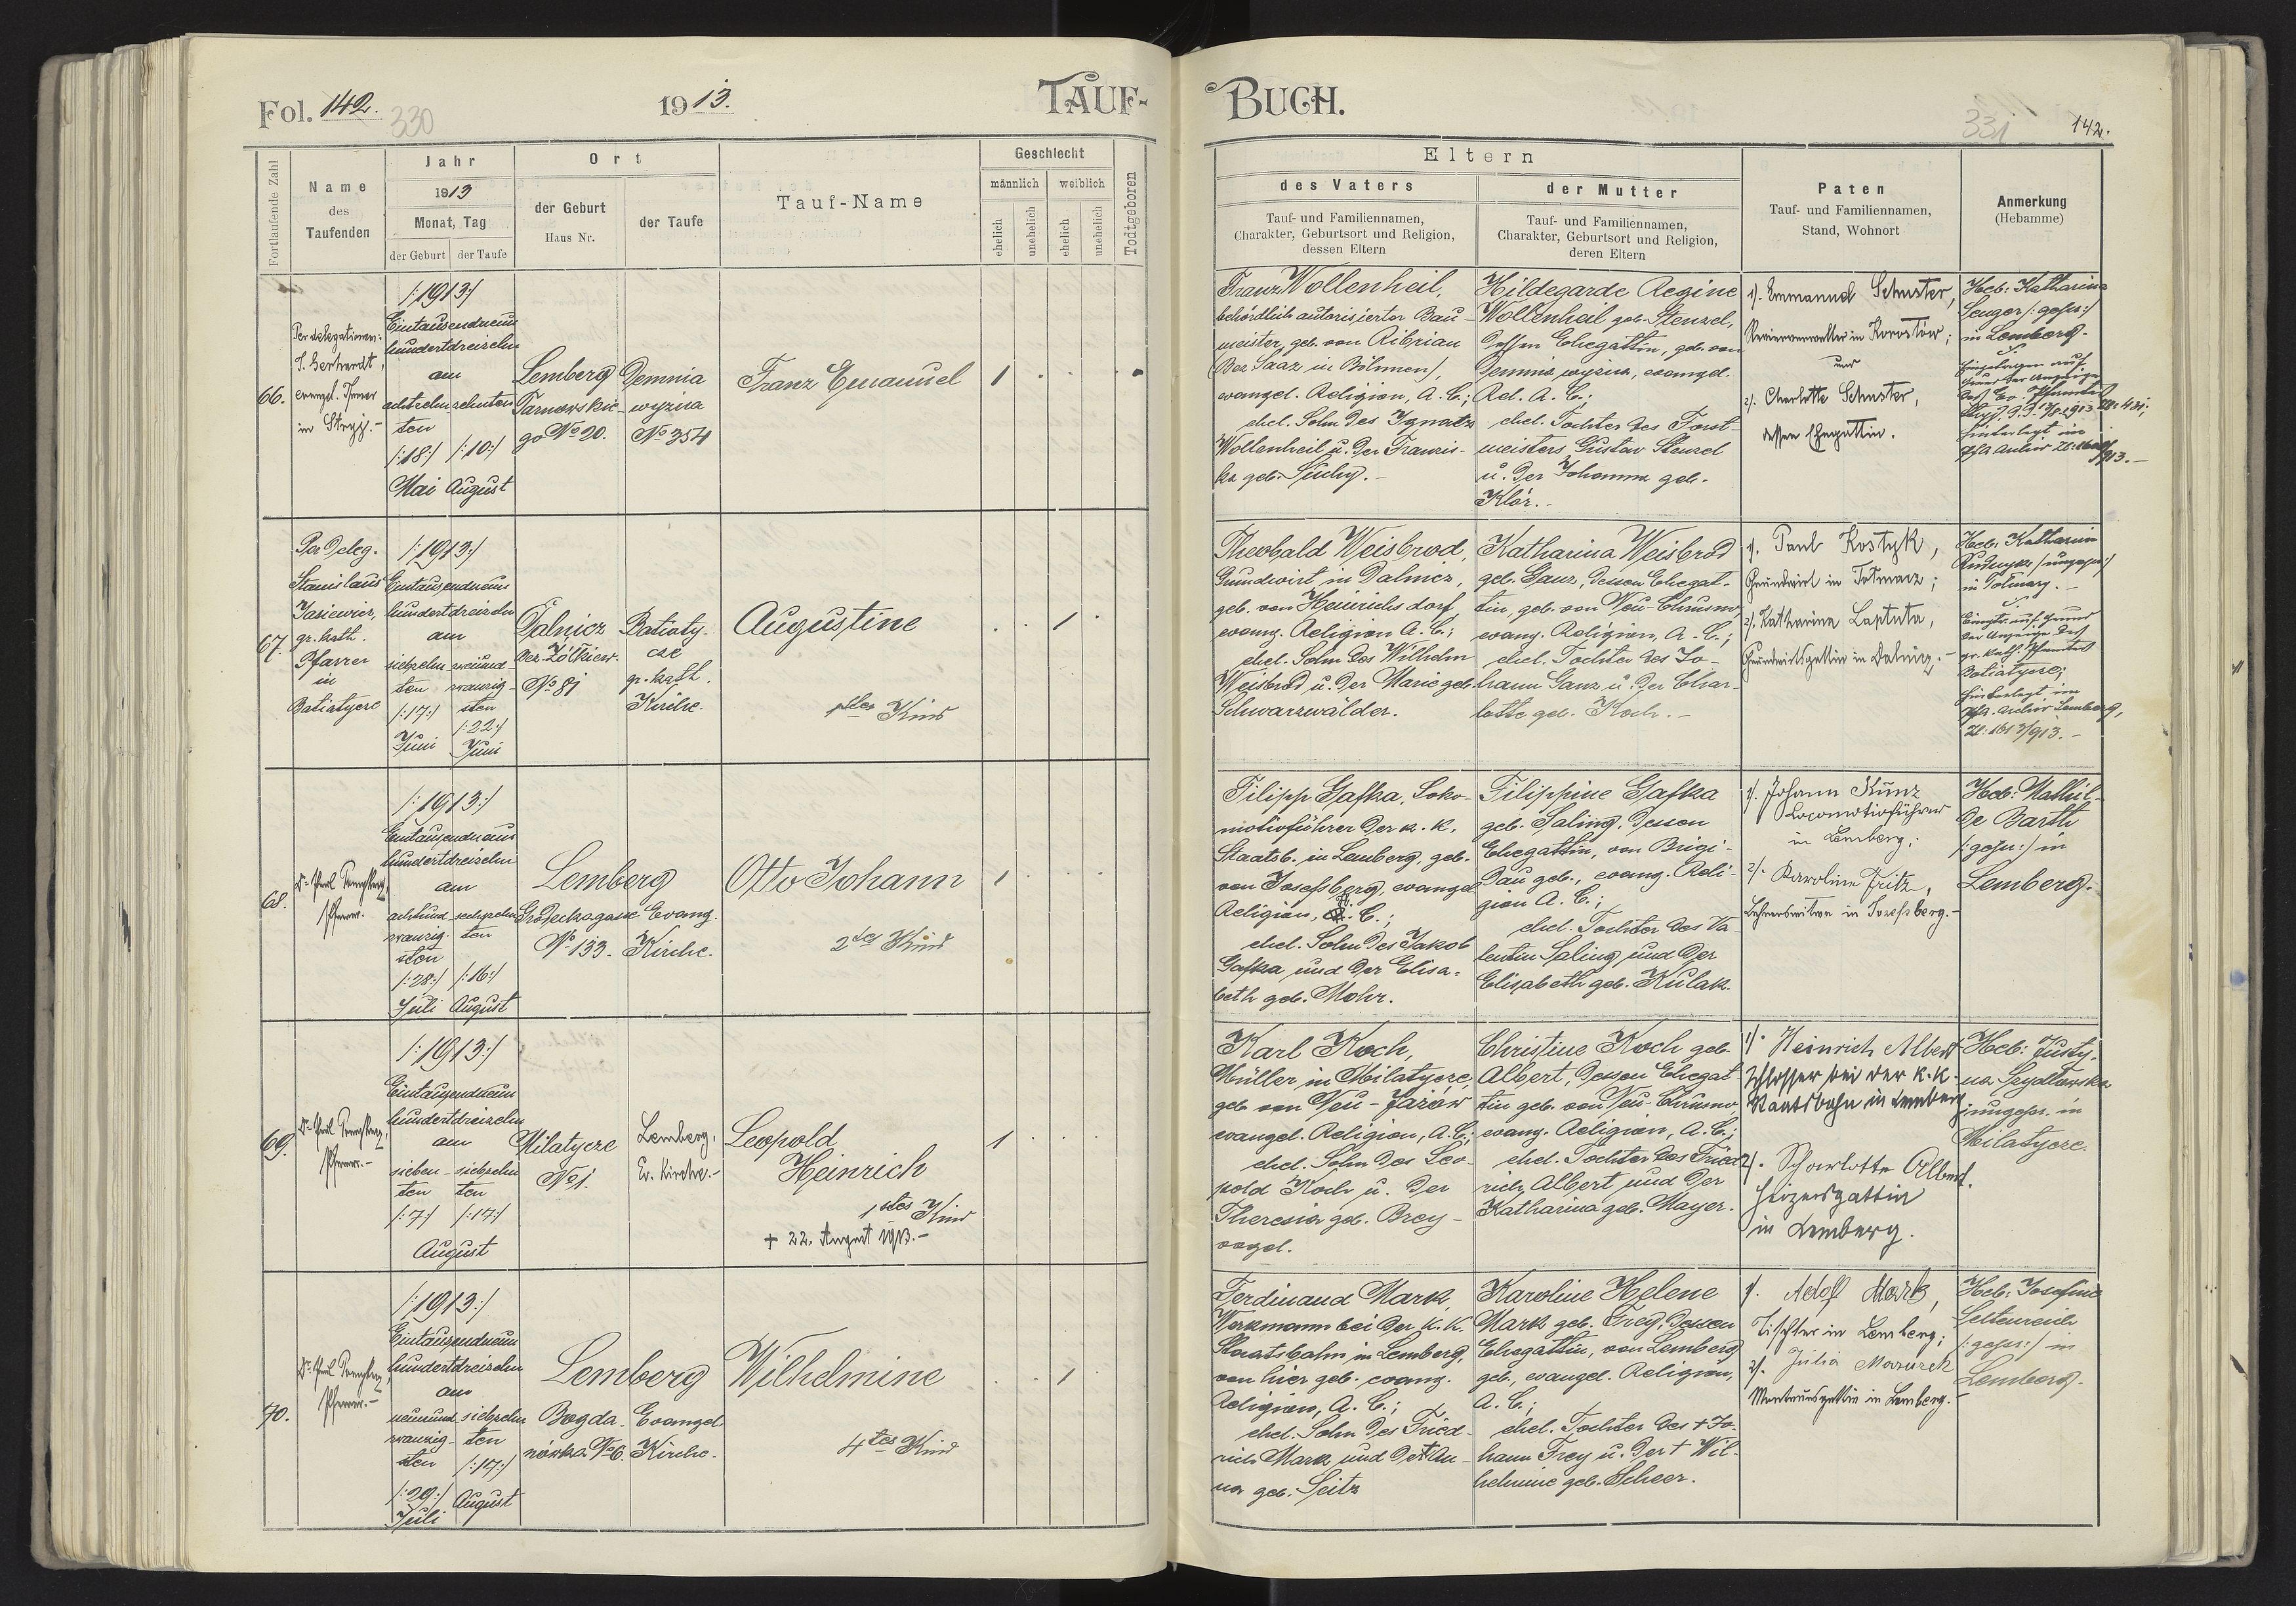 Fol. 142.
330
1913.
TAUF-
BUCH.
331
142.
Fortlaufende Zahl
Name
des
Taufenden
Jahr
1913
Monat, Tag
der Geburt
der Taufe
Ort
der Geburt
Haus Nr.
der Taufe
Tauf-Name
Geschlecht
männlich
weiblich
ehelich
unehelich
ehelich
unehelich
Todtgeboren
Eltern
des Vaters
Tauf- und Familiennamen,
Charakter, Geburtsort und Religion,
dessen Eltern
der Mutter
Tauf- und Familiennamen,
Charakter, Geburtsort und Religion,
deren Eltern
Paten
Tauf- und Familiennamen,
Stand, Wohnort
Anmerkung
(Hebamme)
66.
Per delegationem:
evangel. Pfarrer
in Stryj.-
/:1913:/
Eintausendneun
hundertdreizehn
am
achtzehn-
ten
/:18:/
Mai
zehnten
/:10:/
August
Lemberg
Tarnowskie-
go No 20.
Demnia
wyzna
No 354
Franz Emanuel
1
Franz Wollenheil,
behördlich autorisierter Bau-
meister, geb. von Aibrian
(Bez. Saaz in Böhmen),
evangel. Religion, A. C.;
ehel. Sohn des Ignatz
Wollenheil u. der Franzis-
ka geb. Suchy.-
Hildegarde Regine
Wollenheil geb. Stenzel,
dessen Ehegattin, geb. von
Demnia wyzna, evangel.
Rel. A. C.;
ehel. Tochter des Forst-
meisters Gustav Stenzel
u. der Johanna geb.
Klór.-
1). Emmanuel Schuster,
in Korostów;
und
2). Charlotte Schuster,
dessen Ehegattin.
Heb: Katharina
Senger /:gepr:/
in Lemberg.
Eingetragen auf
Grund der Anzeige
des Ev. Pfarramtes
hinterlegt im
67.
Per Deleg.
Stanislaus
Jasiewicz,
gr. kath.
Pfarrer
in
Batiatycze
/:1913:/
Eintausendneun
hundertdreizehn
am
siebzehn-
ten
/:17:/
Juni
zweiund-
zwanzig-
sten
/:22:/
Juni
Dalnicz
Bez. Żółkiew.
No 81
Batiaty-
cze
gr. kath.
Kirche.
Augustine
1tes Kind
1
Theobald Weisbrod,
Grundwirt in Dalnicz,
geb. von Heinrichsdorf,
evang. Religion A. C.;
ehel. Sohn des Wilhelm
Weisbrod u. der Marie geb.
Schwarzwälder.
Katharina Weisbrod
geb. Ganz, dessen Ehegat-
tin, geb. von Neu-Chrusno,
evang. Religion, A. C.;
ehel. Tochter des Jo-
hann Ganz u. der Char-
lotte geb. Koch.-
1). Paul Kostyk,
Grundwirt in
2). Katharina Laptuta,
Grundwirtsgattin in Dalnicz.-
Heb: Katharina
/ungepr:/
in
Eingetr. auf Grund
der Anzeige des
gr. kath. Pfarramtes
Batiatycze;
hinterlegt im
Pfr. Archiv Lemberg,
Zl: 1613/913.-
68.
Pfarrer.
/:1913:/
Eintausendneun
hundertdreizehn
am
achtund-
zwanzig-
sten
/:28:/
Juli
sechzehn
ten
/:16:/
August
Lemberg
Grodeckagasse
No 133.
Evang.
Kirche.
Otto Johann
2tes Kind
1
Filipp Gafka, Loko-
motivführer der k. k.
Staatsb. in Lemberg, geb.
von Josefsberg, evangel.
Religion, C.;
ehel. Sohn des Jakob
Gafka und der Elisa-
beth geb. Mohr.
Filippine Gafka
geb. Saling, dessen
Ehegattin, von Brigi-
dau geb., evang. Reli-
gion A. C.;
ehel. Tochter des Va-
lentin Saling und der
Elisabeth geb. Kulak.
1). Johann Kunz
Locomotivführer
in Lemberg;
2). Karoline Fritz,
Lehrerswitwe in Josefsberg.-
Heb: Mathil-
de Barth
/:gepr:/ in
Lemberg.
69.
Pfarrer.-
/:1913:/
Eintausendneun
hundertdreizehn
am
sieben-
ten
/:7:/
siebzehn
ten
/:17:/
August
Milatycze
No 1.
Lemberg.
Ev. Kirche.-
Leopold
Heinrich
1stes Kind
+ 22. August 1913.-
1
Karl Koch,
Müller, in Milatycze,
geb. von Neu-Jazów
evangel. Religion, A. C.;
ehel. Sohn des Leo-
pold Koch u. der
Theresia geb. Brey-
vogel.
Christine Koch geb.
Albert, dessen Ehegat-
tin geb. von Neu-Chrusno,
evang. Religion, A. C.;
ehel. Tochter des Fried-
rich Albert und der
Katharina geb. Mayer.
1). Heinrich Albert
Schlosser bei der k. k.
Staatsbahn in Lemberg
2). Scharlotte Albert.
Heizersgattin
in Lemberg.
Heb: Justy-
na Szydlowska
ungepr. in
Milatycze.
70.
Pfarrer.-
/:1913:/
Eintausendneun
hundertdreizehn
am
neunund-
zwanzig-
sten
/:29:/
Juli
siebzehn
ten
/:17:/
August
Lemberg
Bogda-
nówka No 6.
Evangel.
Kirche.
Wilhelmine
4tes Kind
1
Ferdinand Mark,
Werkmann bei der k. k.
Staatsbahn in Lemberg,
von hier geb. evang.
Religion, A. C.;
ehel. Sohn des Fried-
rich Mark und der + An-
na geb. Seitz
Karoline Helene
Mark geb. Frey, dessen
Ehegattin, von Lemberg
geb., evangel. Religion,
A. C.;
ehel. Tochter des + Jo-
hann Frey u. der + Wil-
helmine geb. Scheer.
1). Adolf Mark,
Tischler in Lemberg;
2). Julia Mazurek
in Lemberg.-
Heb: Josefine
Seltenreich
/:gepr:/ in
Lemberg.